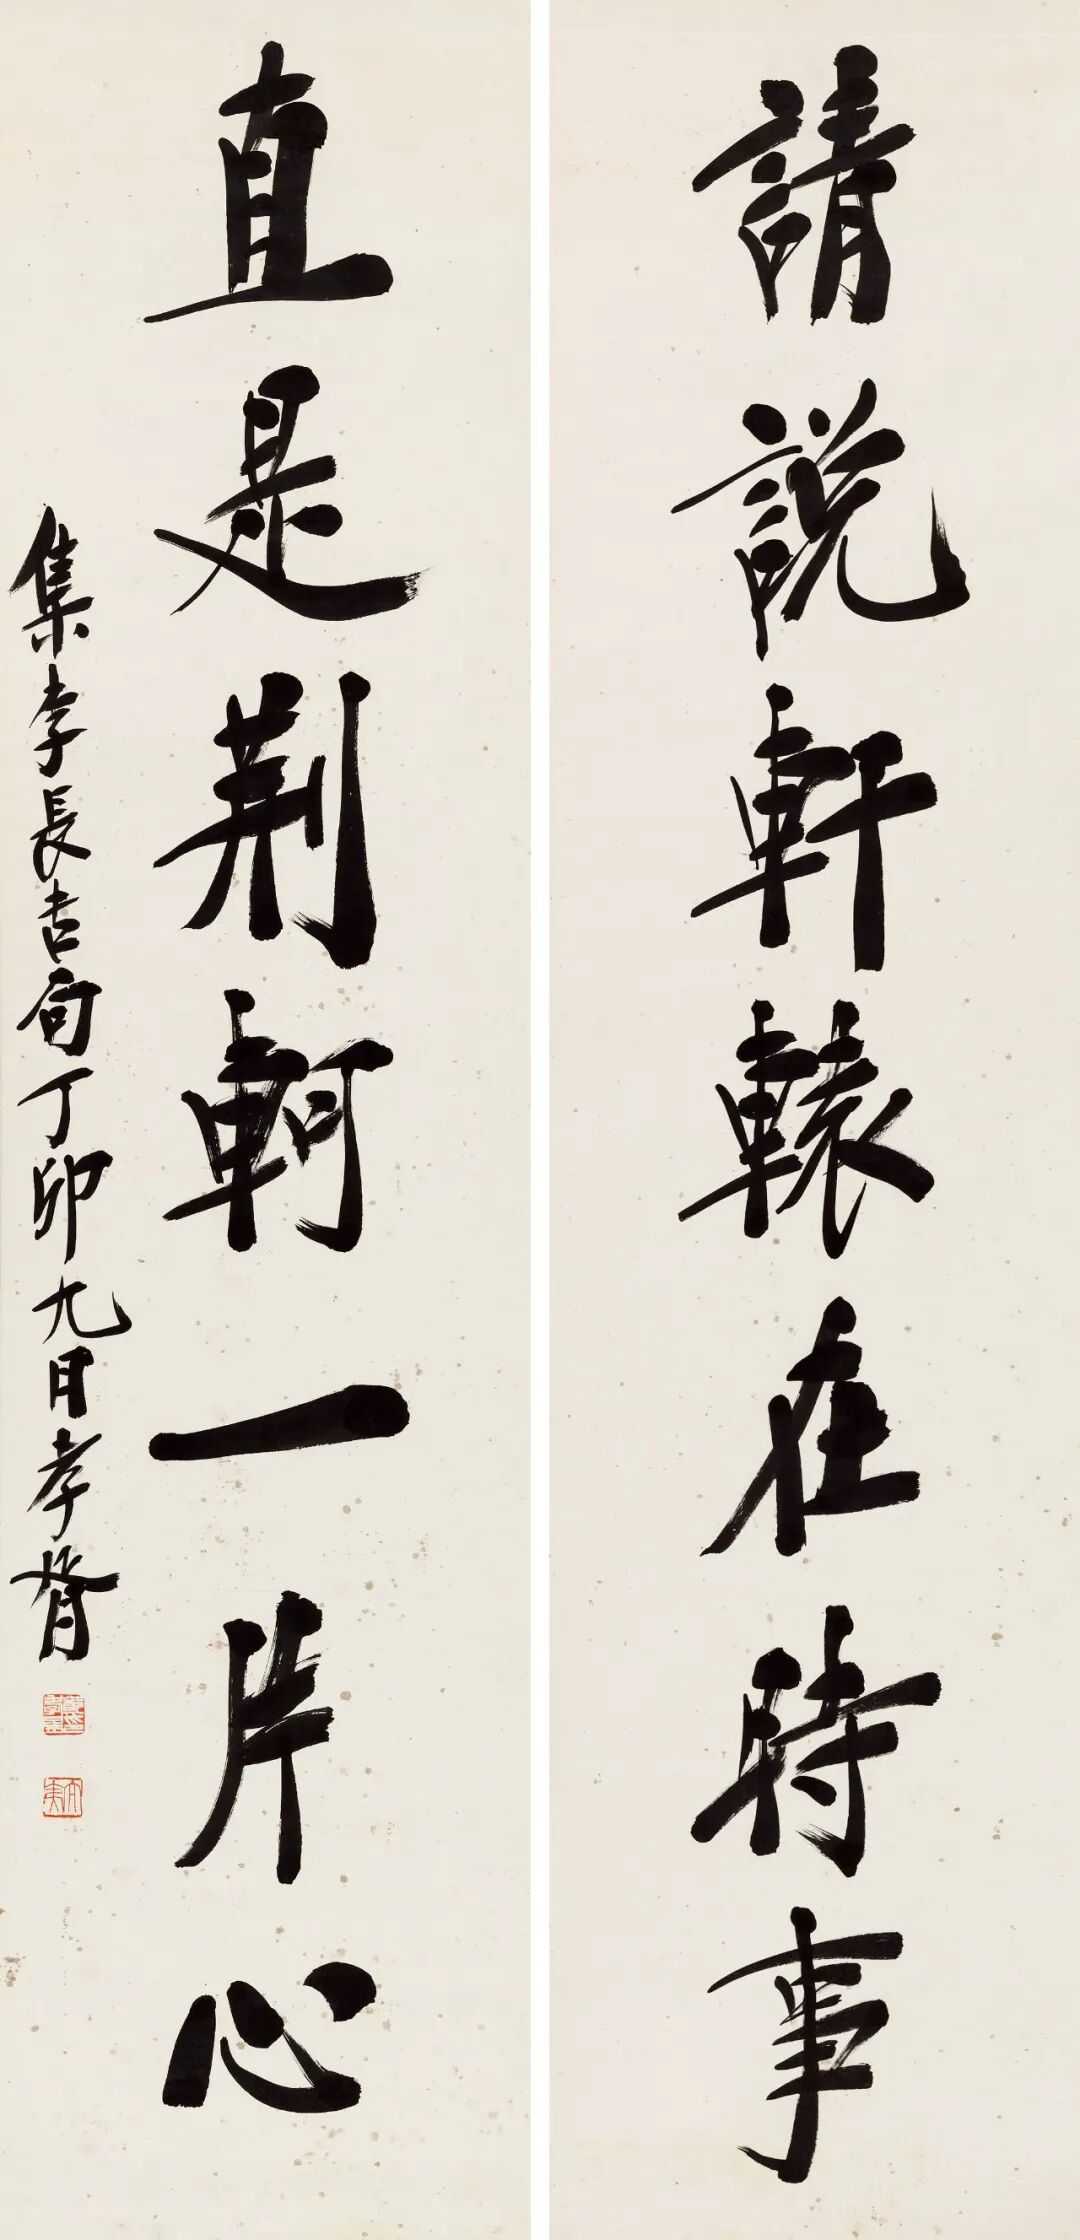 請說軒轅在時事
直是荆軻一片心
集李長吉句丁卯九日孝胥